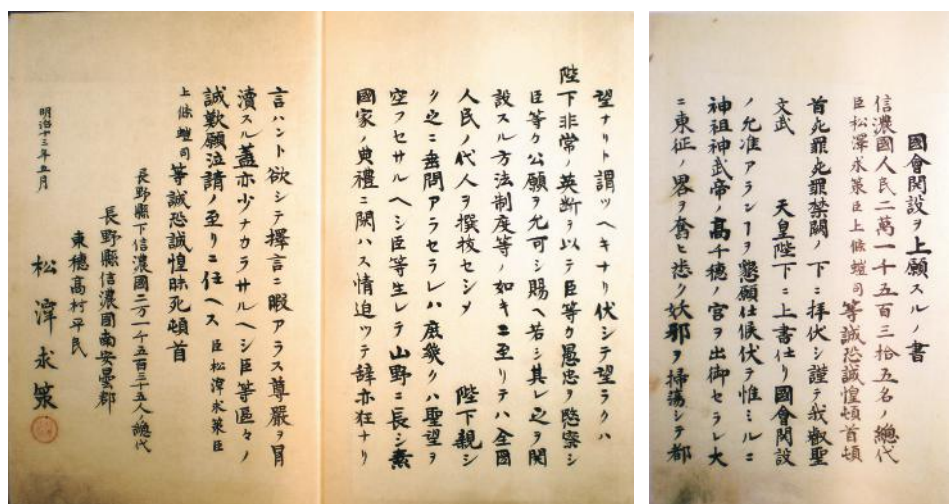 國會開設ヲ上願スルノ書
信濃國人民二萬一千五百三拾五名ノ總代
臣松澤求策臣上條螘司等誠恐誠惶頓首頓
首死罪死罪禁闕ノ下ニ拝伏シ謹テ我叡聖
文武 天皇陛下ニ上書仕リ國會開設
ノ允准アランヿヲ懇願仕候伏テ惟ミルニ
神祖神武帝ノ高千穂ノ宮ヲ出御セラレ大
ニ東征ノ畧ヲ奮ヒ悉ク妖邪ヲ掃蕩シテ都
望ナリト謂ツヘキナリ伏シテ望ラクハ
陛下非常ノ英断ヲ以テ臣等カ愚忠ヲ愍察シ
臣等カ公願ヲ允可シ賜ヘ若シ其レ之ヲ開
設スル方法制度等ノ如キニ至リテハ全国
人民ノ代人ヲ撰抜セシメ 陛下親シ
ク之ニ垂問アラセラレハ庶幾クハ聖望ヲ
空フセサルヘシ臣等生レテ山野ニ長シ素
國家ノ典禮ニ閑ハス情迫ツテ辞亦狂ナリ
言ハント欲シテ擇言ニ暇アラス尊嚴ヲ冒
瀆スル蓋亦少ナカラサルヘシ臣等區々ノ
誠歎願泣請ノ至リニ任ヘス臣松澤求策臣
上條螘司等誠恐誠惶昧死頓首
長野縣下信濃國二万一千五百三十五人總代
長野縣信濃國南安曇郡
東穂高村平民
松澤求策
明治十三年五月